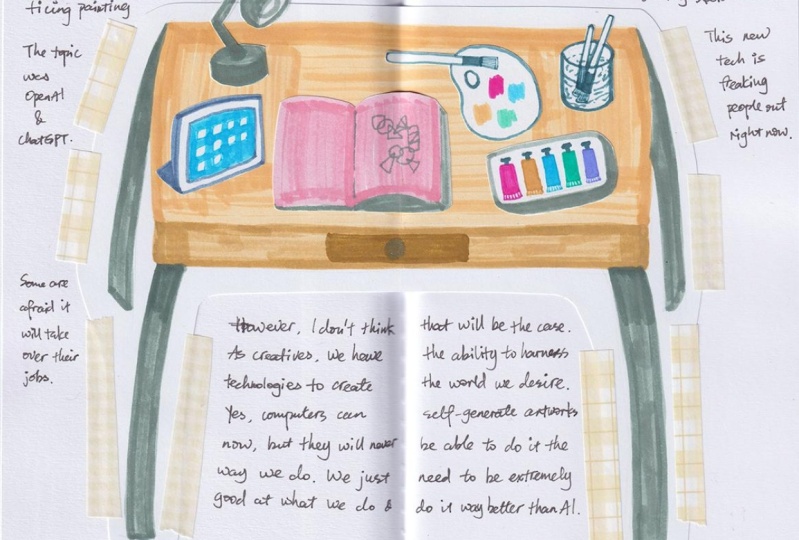 ticing painting
The topic
was
OpenAI
&
ChatGPT.
Some are
afraid it
will take
over their
jobs.
This new
tech is
freaking
people out
right now.
However, I don't think that will be the case.
As creatives, we have the ability to harness
technologies to create the world we desire.
Yes, computers can self-generate artworks
now, but they will never be able to do it the
way we do. We just need to be extremely
good at what we do & do it way better than AI.